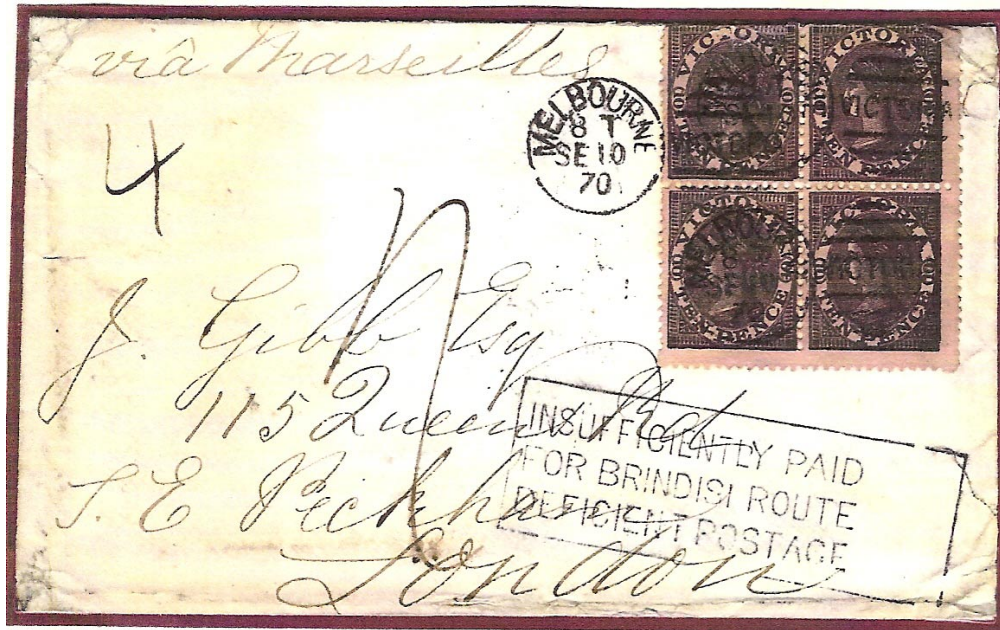 viâ Marseilles
MELBOURNE
8 T
SE 10
70
4
VICTORIA
TEN PENCE
VICTORIA
TEN PENCE
VICTORIA
TEN PENCE
VICTORIA
TEN PENCE
VICTORIA
VICTORIA
MELBOURNE
J. Gibb Esq
115 Queens Rd
S. E Peckham
London
INSUFFICIENTLY PAID
FOR BRINDISI ROUTE
DEFICIENT POSTAGE